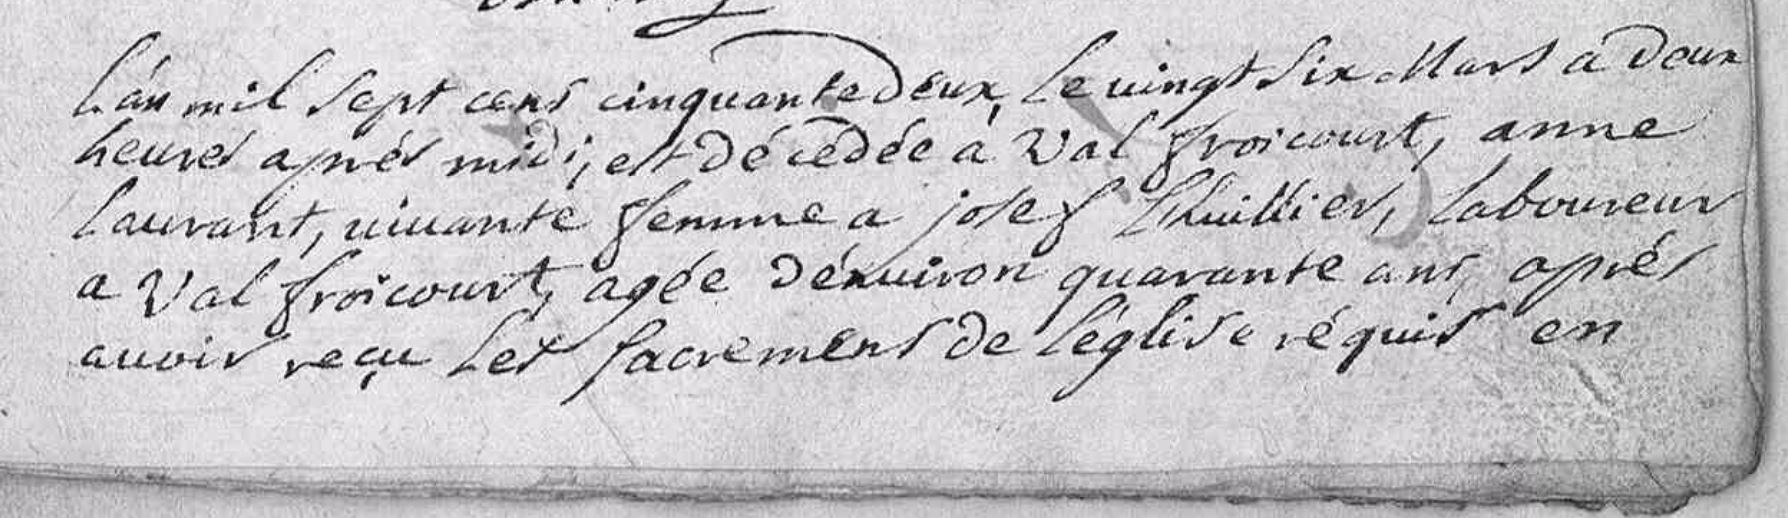 L'an mil sept cens cinquante deux, le vingt six Mars a deux
heures aprés midi, est décedée à Val froicourt, anne
Laurant, vivante femme a josef Lhuillier, Laboureur
a Val froicourt, agée dénviron quarante ans, aprés
avoir reçu Les sacremens de l'églisе réquis en